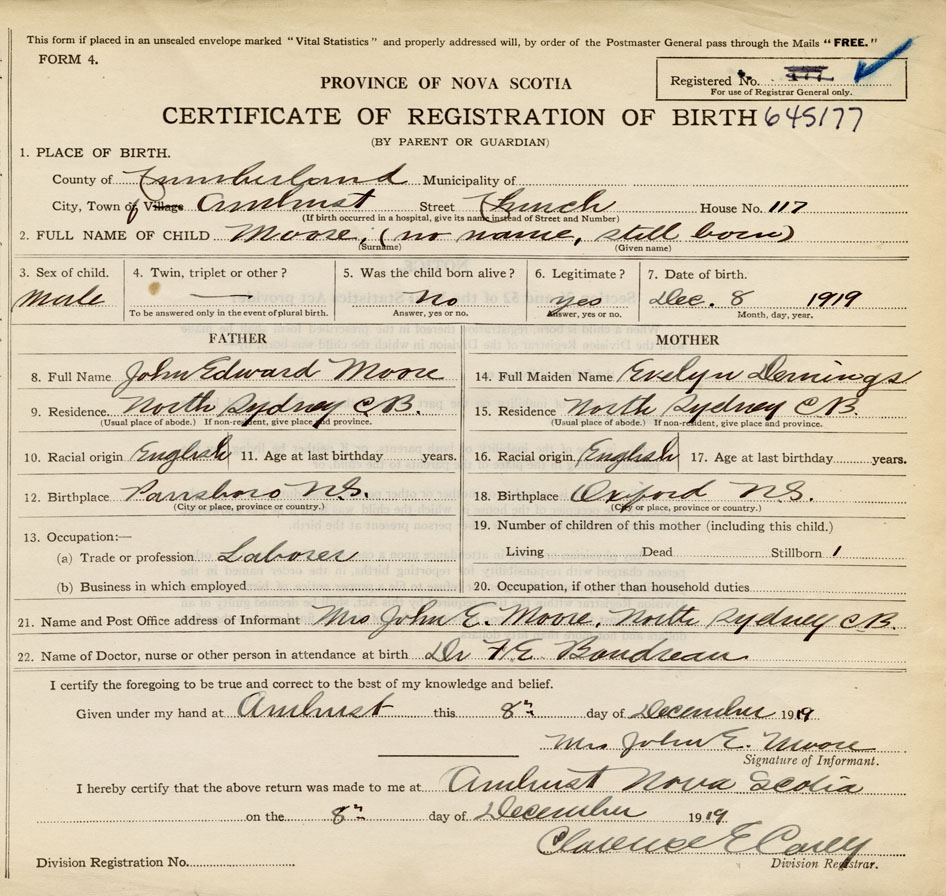 This form if placed in an unsealed envelope marked "Vital Statistics" and properly addressed will, by order of the Postmaster General pass through the Mails "FREE."
FORM 4.
Registered No.
For use of Registrar General only.
PROVINCE OF NOVA SCOTIA
CERTIFICATE OF REGISTRATION OF BIRTH 645177
(BY PARENT OR GUARDIAN)
1. PLACE OF BIRTH.
County of Cumberland Municipality of
City, Town of Village Amherst Street Church House No. 117
(If birth occurred in a hospital, give its name instead of Street and Number)
2. FULL NAME OF CHILD Moore, (no name, still born)
(Surname) (Given name)
3. Sex of child. 4. Twin, triplet or other? 5. Was the child born alive? 6. Legitimate? 7. Date of birth.
Male — No yes Dec. 8 1919
To be answered only in the event of plural birth. Answer, yes or no. Answer, yes or no. Month, day, year.
FATHER MOTHER
8. Full Name John Edward Moore 14. Full Maiden Name Evelyn Demings
9. Residence North Sydney C.B. 15. Residence North Sydney C.B.
(Usual place of abode.) If non-resident, give place and province. (Usual place of abode.) If non-resident, give place and province.
10. Racial origin English 11. Age at last birthday years. 16. Racial origin English 17. Age at last birthday years.
12. Birthplace Parrsboro N.S. 18. Birthplace Oxford N.S.
(City or place, province or country.) (City or place, province or country.)
13. Occupation:— 19. Number of children of this mother (including this child.)
(a) Trade or profession Laborer Living Dead Stillborn 1
(b) Business in which employed 20. Occupation, if other than household duties
21. Name and Post Office address of Informant Mrs John E. Moore, North Sydney C.B.
22. Name of Doctor, nurse or other person in attendance at birth Dr F. E. Boudreau
I certify the foregoing to be true and correct to the best of my knowledge and belief.
Given under my hand at Amherst this 8th day of December 1919
Mrs John E. Moore
Signature of Informant.
I hereby certify that the above return was made to me at Amherst Nova Scotia
on the 8th day of December 1919
Clarence E Carey
Division Registration No. Division Registrar.